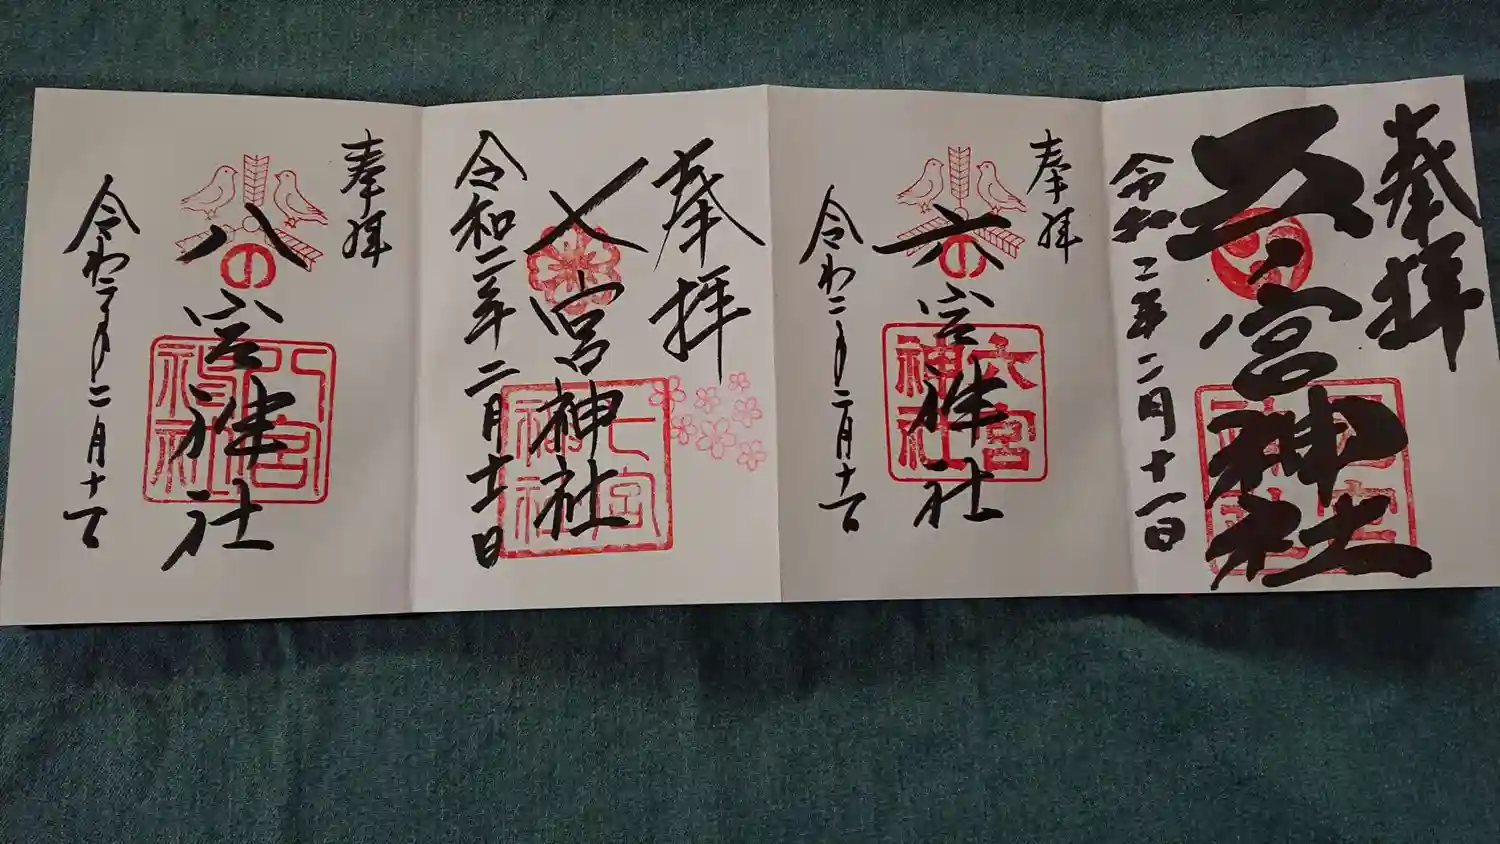 奉拝
五宮神社
令和二年二月十一日
奉拝
六の宮神社
六宮神社
令和二年二月十一日
奉拝
七宮神社
七宮神社
令和二年二月十一日
奉拝
八の宮神社
八宮神社
令和二年二月十一日